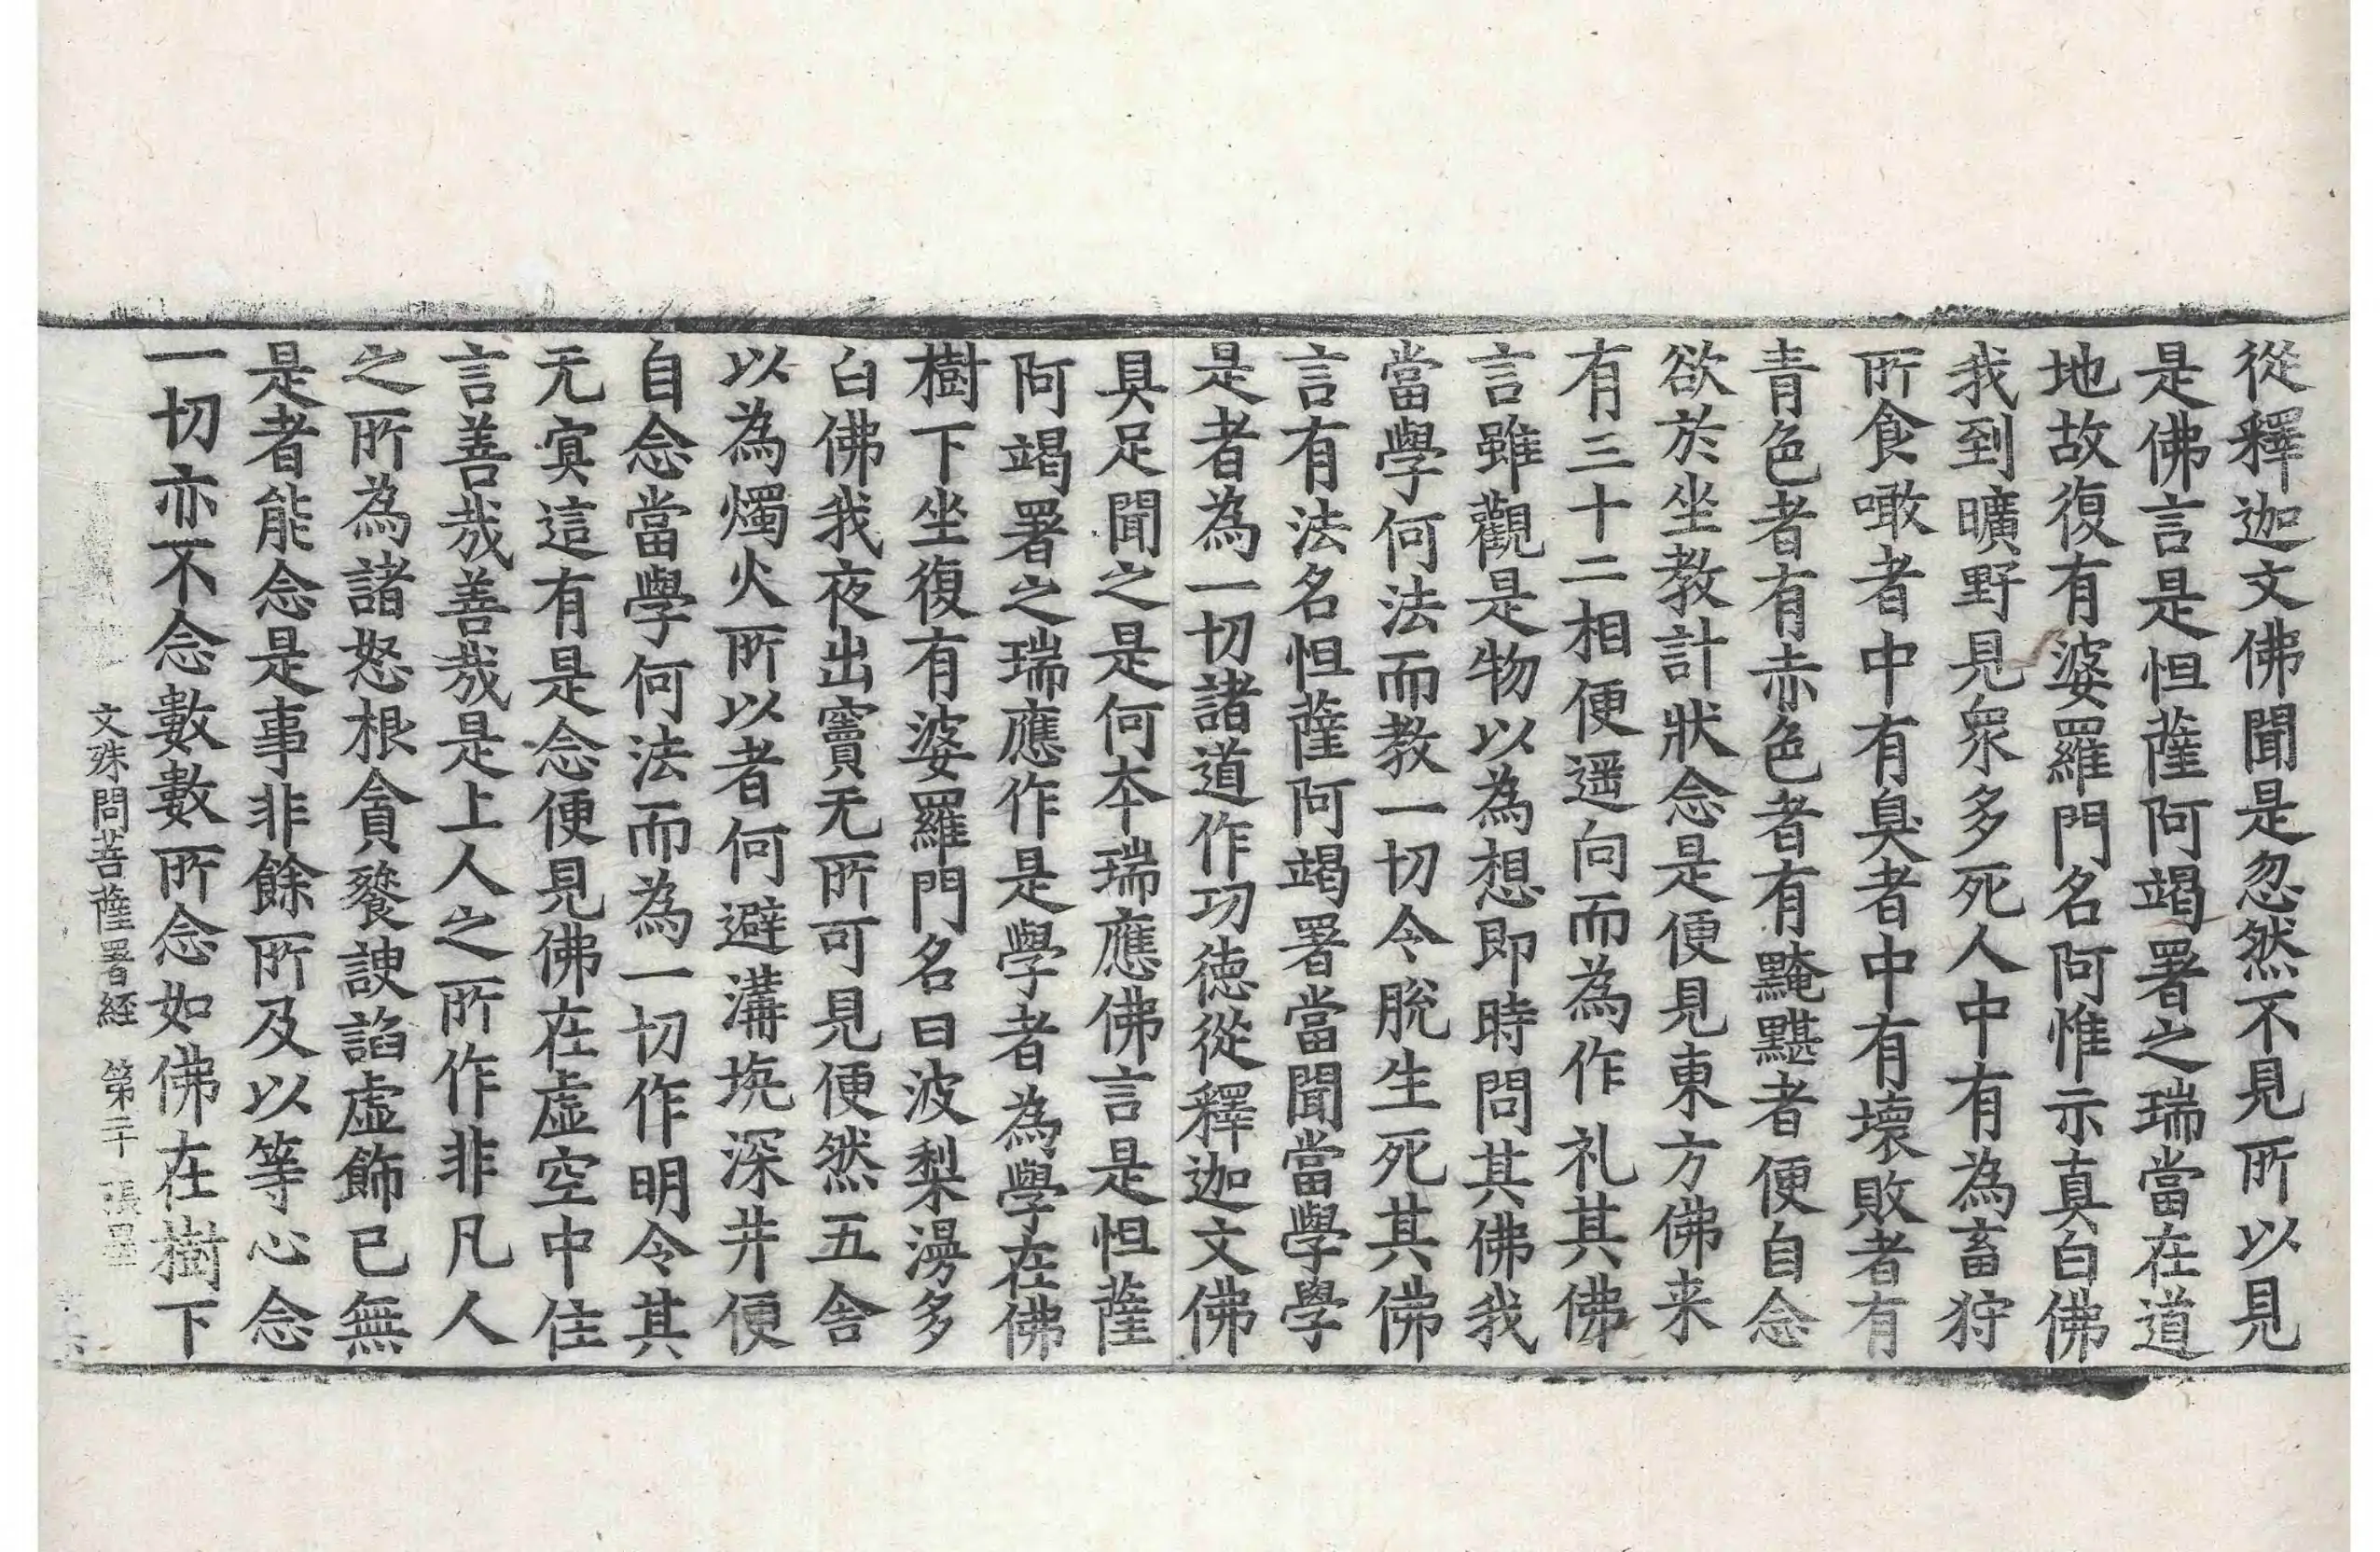 從釋迦文佛聞是忽然不見所以見
是佛言是怛薩阿竭署之瑞當在道
地故復有婆羅門名阿惟示真白佛
我到曠野見衆多死人中有為畜狩
所食噉者中有臭者中有壞敗者有
青色者有赤色者有黤黮者便自念
欲於坐教計狀念是便見東方佛来
有三十二相便遥向而為作礼其佛
言雖觀是物以為想即時問其佛我
當學何法而教一切令脫生死其佛
言有法名怛薩阿竭署當聞當學學
是者為一切諸道作功徳從釋迦文佛
具足聞之是何夲瑞應佛言是怛薩
阿竭署之瑞應作是學者為學在佛
樹下坐復有婆羅門名曰波梨漫多
白佛我夜出竇无所可見便然五舍
以為燭火所以者何避溝坑深井便
自念當學何法而為一切作明令其
无㝠這有是念便見佛在虛空中住
言善㢤善㢤是上人之所作非凡人
之所為諸怒根貪餮諛諂虛飾已無
是者能念是事非餘所及以等心念
一切亦不念數數所念如佛在樹下
文殊問菩薩署経 第二十 張